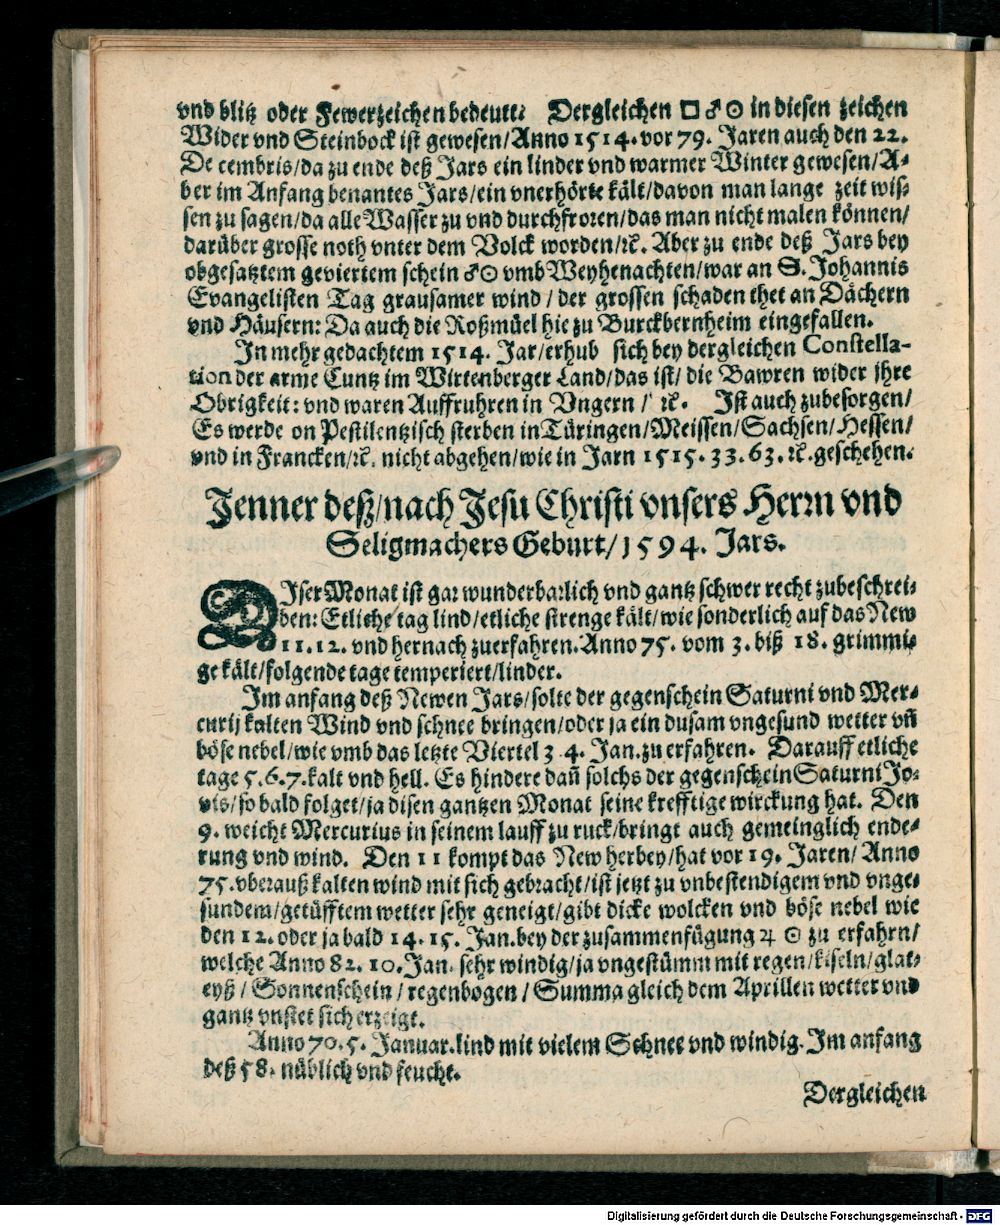 vnd blitz oder Fewerzeichen bedeutt: Dergleichen □ ♂ ☉ in diesen zeichen
Wider vnd Steinbock ist gewesen/Anno 1514. vor 79. Jaren auch den 22.
De cembris/da zu ende deß Jars ein linder vnd warmer Winter gewesen/A-
ber im Anfang benantes Jars/ein vnerhörte kält/davon man lange zeit wis-
sen zu sagen/da alle Wasser zu vnd durchfroren/das man nicht malen können/
darüber grosse noth vnter dem Volck worden/ꝛc. Aber zu ende deß Jars bey
obgesatztem geviertem schein ♂ ☉ vmb Weyhenachten/war an S. Johannis
Evangelisten Tag grausamer wind / der grossen schaden thet an Dächern
vnd Häusern: Da auch die Roßmüel hie zu Burckbernheim eingefallen.
In mehr gedachtem 1514. Jar/erhub sich bey dergleichen Constella-
tion der arme Cuntz im Wirtenberger Land/das ist/ die Bawren wider jhre
Obrigkeit: vnd waren Auffruhren in Vngern / ꝛc. Ist auch zubesorgen/
Es werde on Pestilentzisch sterben in Türingen/Meissen/Sachsen/Hessen/
vnd in Francken/ꝛc. nicht abgehen/wie in Jarn 1515. 33. 63. ꝛc. geschehen.
Jenner deß/nach Jesu Christi vnsers Herrn vnd
Seligmachers Geburt/1594. Jars.
DIser Monat ist gar wunderbarlich vnd gantz schwer recht zubeschrei-
ben: Etliche tag lind/etliche strenge kält/wie sonderlich auf das New
11. 12. vnd hernach zuerfahren. Anno 75. vom 3. biß 18. grimmi-
ge kält/folgende tage temperiert/linder.
Im anfang deß Newen Jars/solte der gegenschein Saturni vnd Mer-
curij kalten Wind vnd schnee bringen/oder ja ein dusam vngesund wetter vñ
böse nebel/wie vmb das letzte Viertel 3 4. Jan. zu erfahren. Darauff etliche
tage 5. 6. 7. kalt vnd hell. Es hindere dañ solchs der gegenschein Saturni Jo-
vis/so bald folget/ja disen gantzen Monat seine krefftige wirckung hat. Den
9. weicht Mercurius in seinem lauff zu ruck/bringt auch gemeinglich ende-
rung vnd wind. Den 11 kompt das New herbey/hat vor 19. Jaren/ Anno
75. vberauß kalten wind mit sich gebracht/ist jetzt zu vnbestendigem vnd vnge-
sundem/getüfftem wetter sehr geneigt/gibt dicke wolcken vnd böse nebel wie
den 12. oder ja bald 14. 15. Jan. bey der zusammenfügung ♃ ☉ zu erfahrn/
welche Anno 82. 10. Jan. sehr windig/ja vngestümm mit regen/kiseln/glat-
eyß / Sonnenschein / regenbogen / Summa gleich dem Aprillen wetter vnd
gantz vnstet sich erzeigt.
Anno 70. 5. Januar. lind mit vielem Schnee vnd windig. Im anfang
deß 58. nüblich vnd feucht.
Dergleichen
Digitalisierung gefördert durch die Deutsche Forschungsgemeinschaft - DFG